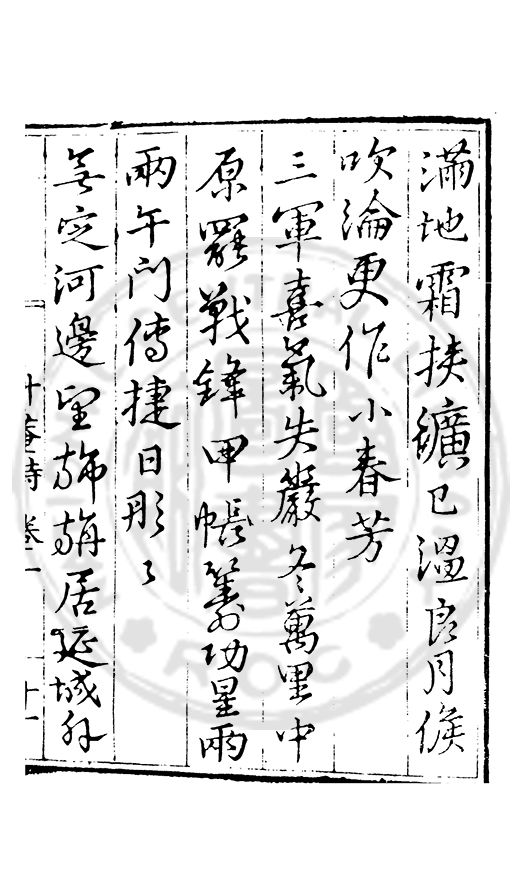 滿地霜挾纊已溫良月候
吹淪更作小春芳
三軍喜氣失嚴冬萬里中
原罷戰鋒甲帳籌功星兩
兩午門傳捷日彤〻
無定河邊望旆旃居延城外
詩 卷 十一